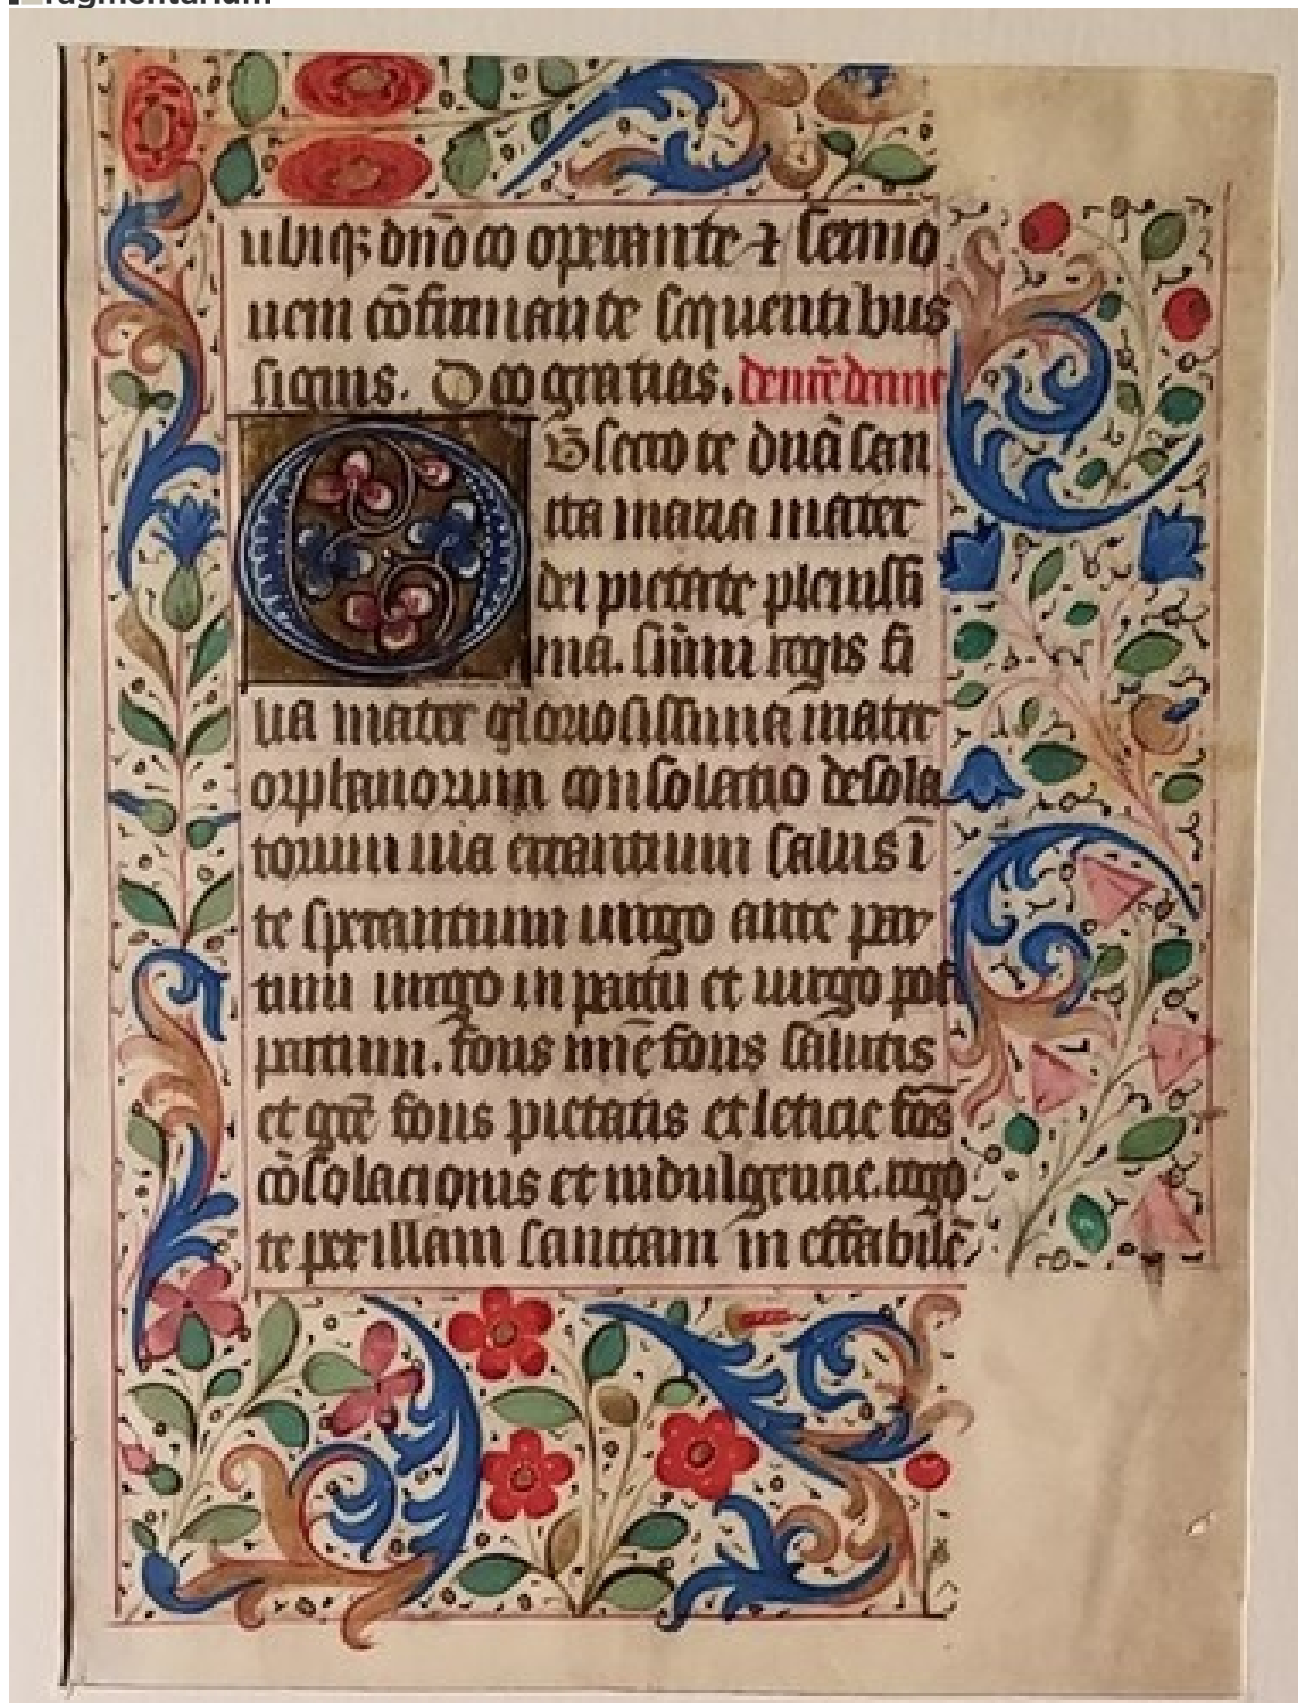 Fragmentarium
ubiqꝫ dn̄o co operante ⁊ sermo
nem cōfirmante sequentibus
signis. Deo gratias.
Obsecro te dn̄a san
cta maria mater
dei pietate plenissi
ma. sūmi regis fi
lia mater gloriosissima mater
orphanorum consolatio desola
torum uia errantium salus ī
te sperantium uirgo ante par
tum uirgo in partu et uirgo post
partum. fons mīe fons salutis
et grē fons pietatis et leticie fōs
cōsolacionis et indulgencie. rogo
te per illam sanctam in effabilē